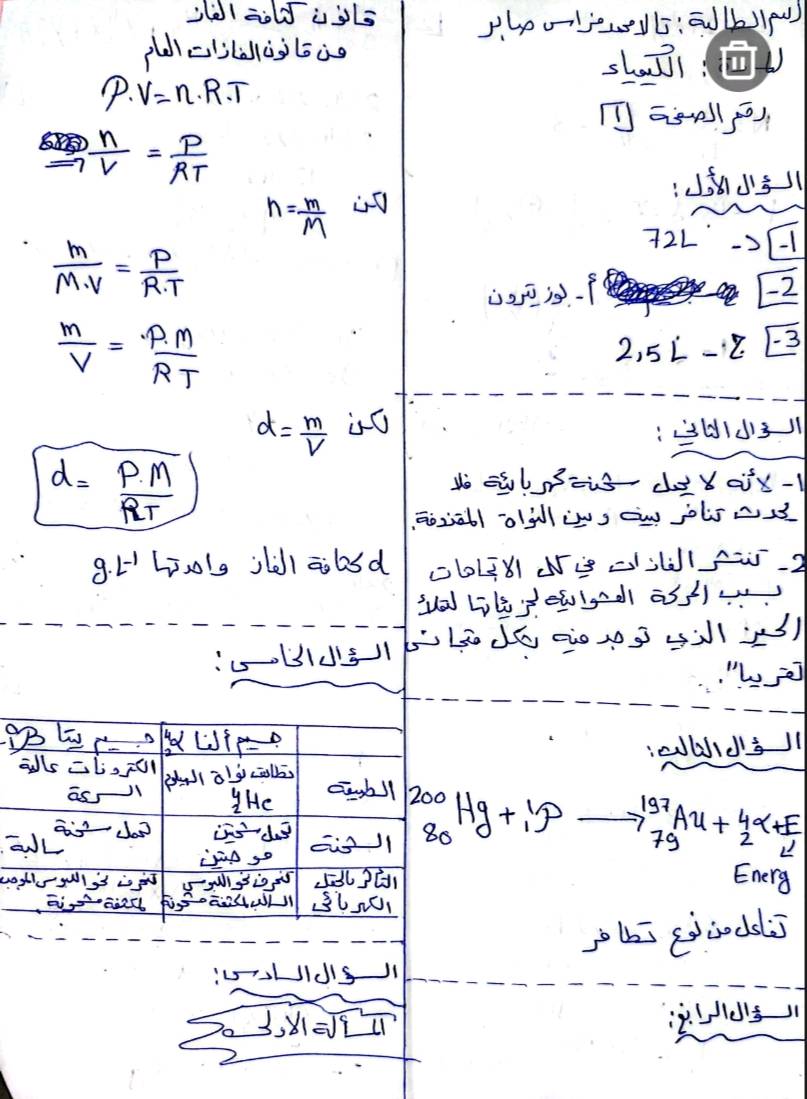 اسم الطالبة: تالا محمد فراس صابر
المادة: الكيمياء
رقم الصفحة [1]
السؤال الأول:
1- د- 72L
2- أ- بوزيترون
3- ج- 2,5 L
السؤال الثاني:
1- لأنه لا يحمل شحنة كهربائية فلا
يحدث تنافر بينه وبين النواة المقذوفة.
2- تنتشر الغازات في كل الاتجاهات
بسبب الحركة العشوائية لجزيئاتها لتملأ
الحيز الذي توضع فيه بشكل متجانس
تقريباً".
السؤال الثالث:
²⁰⁰₈₀Hg + ¹₁P → ¹⁹⁷₇₉Au + ⁴₂α + E
Energ
تفاعل من نوع تطافر
السؤال الرابع:
قانون كثافة الغاز
من قانون الغازات العام
P.V=n.R.T
n/V = P/RT
لكن n = m/M
m/M.V = P/R.T
m/V = P.M/RT
لكن d = m/V
d = P.M/RT
d كثافة الغاز واحدتها g.L⁻¹
السؤال الخامس:
جسيم ألفا ⁴₂α جسيم بيتا ⁰₋₁β
الطبيعة تطابق نواة الهيليوم ⁴₂He الكترونات عالية السرعة
الشحنة تحمل شحنتين موجبتين تحمل شحنة سالبة
التأثر بالحقل الكهربائي تنحرف نحو اللبوس السالب لمكثفة مشحونة تنحرف نحو اللبوس الموجب لمكثفة مشحونة
السؤال السادس:
المسألة الأولى